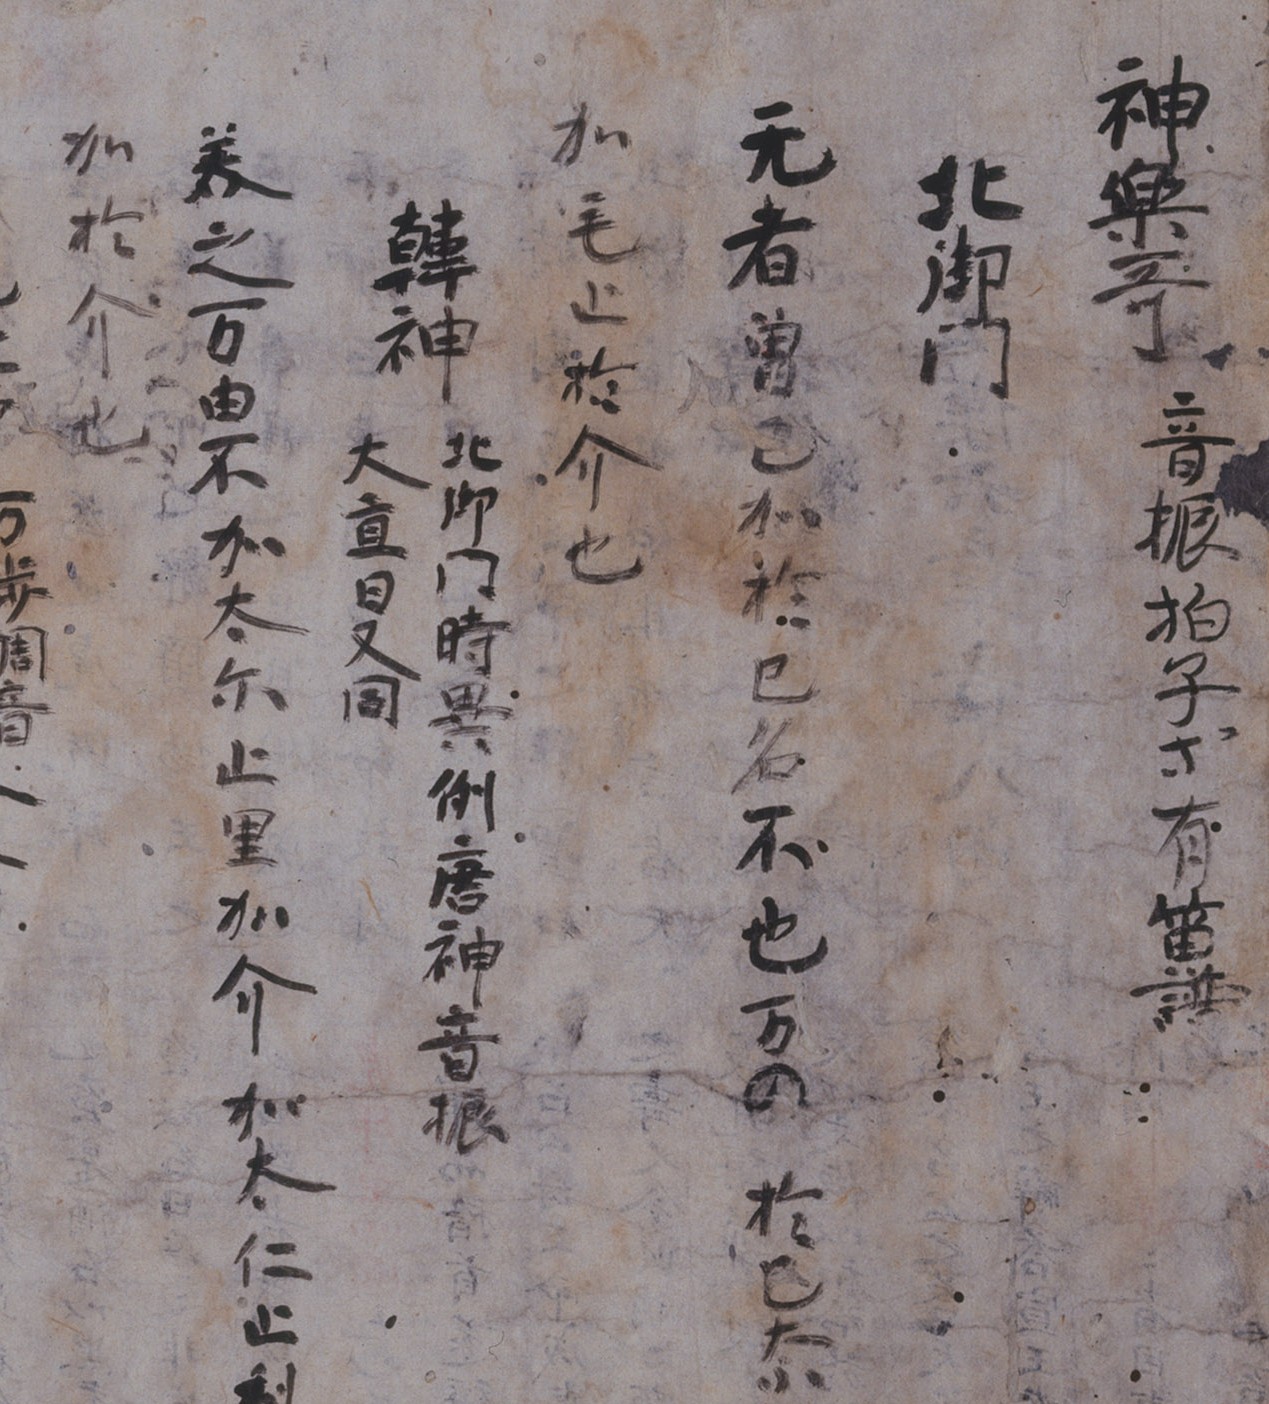 神樂哥 音振拍子等有笛譜
北御門
无者曽己加於己名不也万の 於己奈
加毛止於介也
韓神 北御門時異例唐神音振
大直日又同
美之万由不加太尓止里加介加太仁止利
加於介也